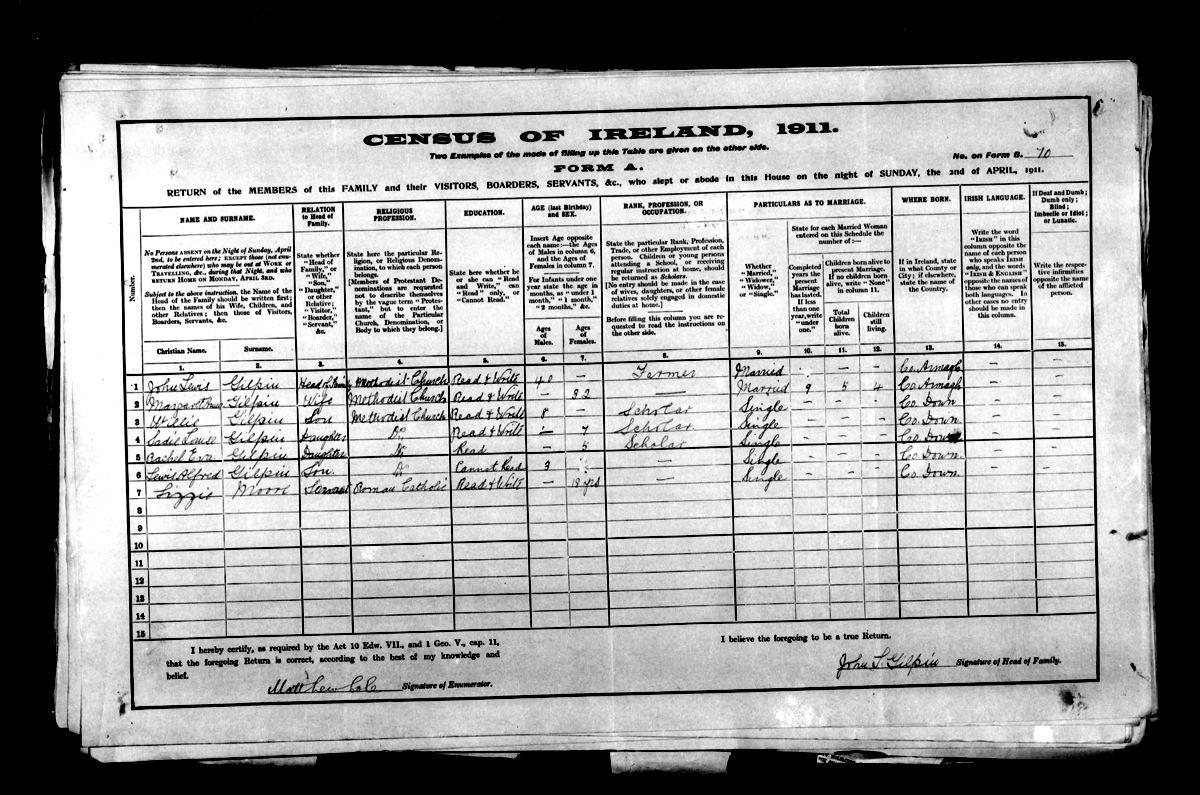 CENSUS OF IRELAND, 1911.
Two Examples of the mode of filling up this Table are given on the other side.
FORM A.
No. on Form B. 70
RETURN of the MEMBERS of this FAMILY and their VISITORS, BOARDERS, SERVANTS, &c., who slept or abode in this House on the night of SUNDAY, the 2nd of APRIL, 1911.
Number.
NAME AND SURNAME.
No Persons ABSENT on the Night of Sunday, April 2nd, to be entered here; EXCEPT those (not enumerated elsewhere) who may be out at WORK or TRAVELLING, &c., during that Night, and who RETURN HOME ON MONDAY, APRIL 3RD.
Subject to the above instruction, the Name of the Head of the Family should be written first; then the names of his Wife, Children, and other Relatives; then those of Visitors, Boarders, Servants, &c.
Christian Name.
Surname.
1.
2.
RELATION to Head of Family.
State whether "Head of Family," or "Wife," "Son," "Daughter," or other Relative; "Visitor," "Boarder," "Servant," &c.
3.
RELIGIOUS PROFESSION.
State here the particular Religion, or Religious Denomination, to which each person belongs.
[Members of Protestant Denominations are requested not to describe themselves by the vague term "Protestant," but to enter the name of the Particular Church, Denomination, or Body to which they belong.]
4.
EDUCATION.
State here whether he or she can "Read and Write," can "Read" only, or "Cannot Read."
5.
AGE (last Birthday) and SEX.
Insert Age opposite each name:—the Ages of Males in column 6, and the Ages of Females in column 7.
For Infants under one year state the age in months, as "under 1 month," "1 month," "2 months," &c.
Ages of Males.
Ages of Females.
6.
7.
RANK, PROFESSION, OR OCCUPATION.
State the particular Rank, Profession, Trade, or other Employment of each person. Children or young persons attending a School, or receiving regular instruction at home, should be returned as Scholars.
[No entry should be made in the case of wives, daughters, or other female relatives solely engaged in domestic duties at home.]
Before filling this column you are requested to read the instructions on the other side.
8.
PARTICULARS AS TO MARRIAGE.
Whether "Married," "Widower," "Widow," or "Single."
State for each Married Woman entered on this Schedule the number of:—
Completed years the present Marriage has lasted. If less than one year, write "under one."
Children born alive to present Marriage. If no children born alive, write "None" in column 11.
Total Children born alive.
Children still living.
9.
10.
11.
12.
WHERE BORN.
If in Ireland, state in what County or City; if elsewhere, state the name of the Country.
13.
IRISH LANGUAGE.
Write the word "IRISH" in this column opposite the name of each person who speaks IRISH only, and the words "IRISH & ENGLISH" opposite the names of those who can speak both languages. In other cases no entry should be made in this column.
14.
If Deaf and Dumb; Dumb only; Blind; Imbecile or Idiot; or Lunatic.
Write the respective infirmities opposite the name of the afflicted person.
15.
1 John Lewis Gilpin Head of Family Methodist Church Read & Write 40 — Farmer Married — — — Co. Armagh — —
2 Gilpin Wife Methodist Church Read & Write — 32 — Married 9 5 4 Co. Armagh — —
3 Willie Gilpin Son Methodist Church Read & Write 8 — Scholar Single — — — Co. Down — —
4 Sadie Louise Gilpin Daughter Do Read & Write — 7 Scholar Single — — — Co. Down — —
5 Rachel Eva Gilpin Daughter Do Read — 5 Scholar Single — — — Co. Down — —
6 Lewis Alfred Gilpin Son Do Cannot Read 3 — Single — — — Co. Down — —
7 Lizzie Moore Servant Roman Catholic Read & Write — 18 yrs — Single — — — Co. Down — —
8
9
10
11
12
13
14
15
I hereby certify, as required by the Act 10 Edw. VII., and 1 Geo. V., cap. 11,
that the foregoing Return is correct, according to the best of my knowledge and
belief.
Matthew Signature of Enumerator.
I believe the foregoing to be a true Return.
John L. Gilpin Signature of Head of Family.